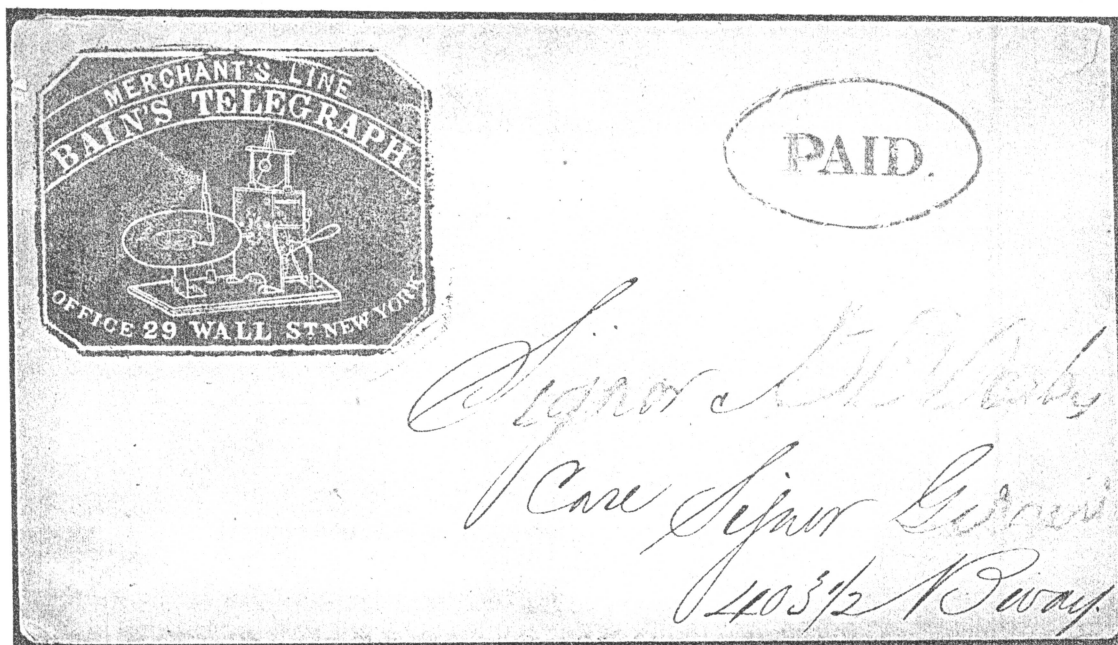 MERCHANT'S LINE
BAIN'S TELEGRAPH
OFFICE 29 WALL ST NEW YORK
PAID.
Signor
Care Signor
403½ Bway.